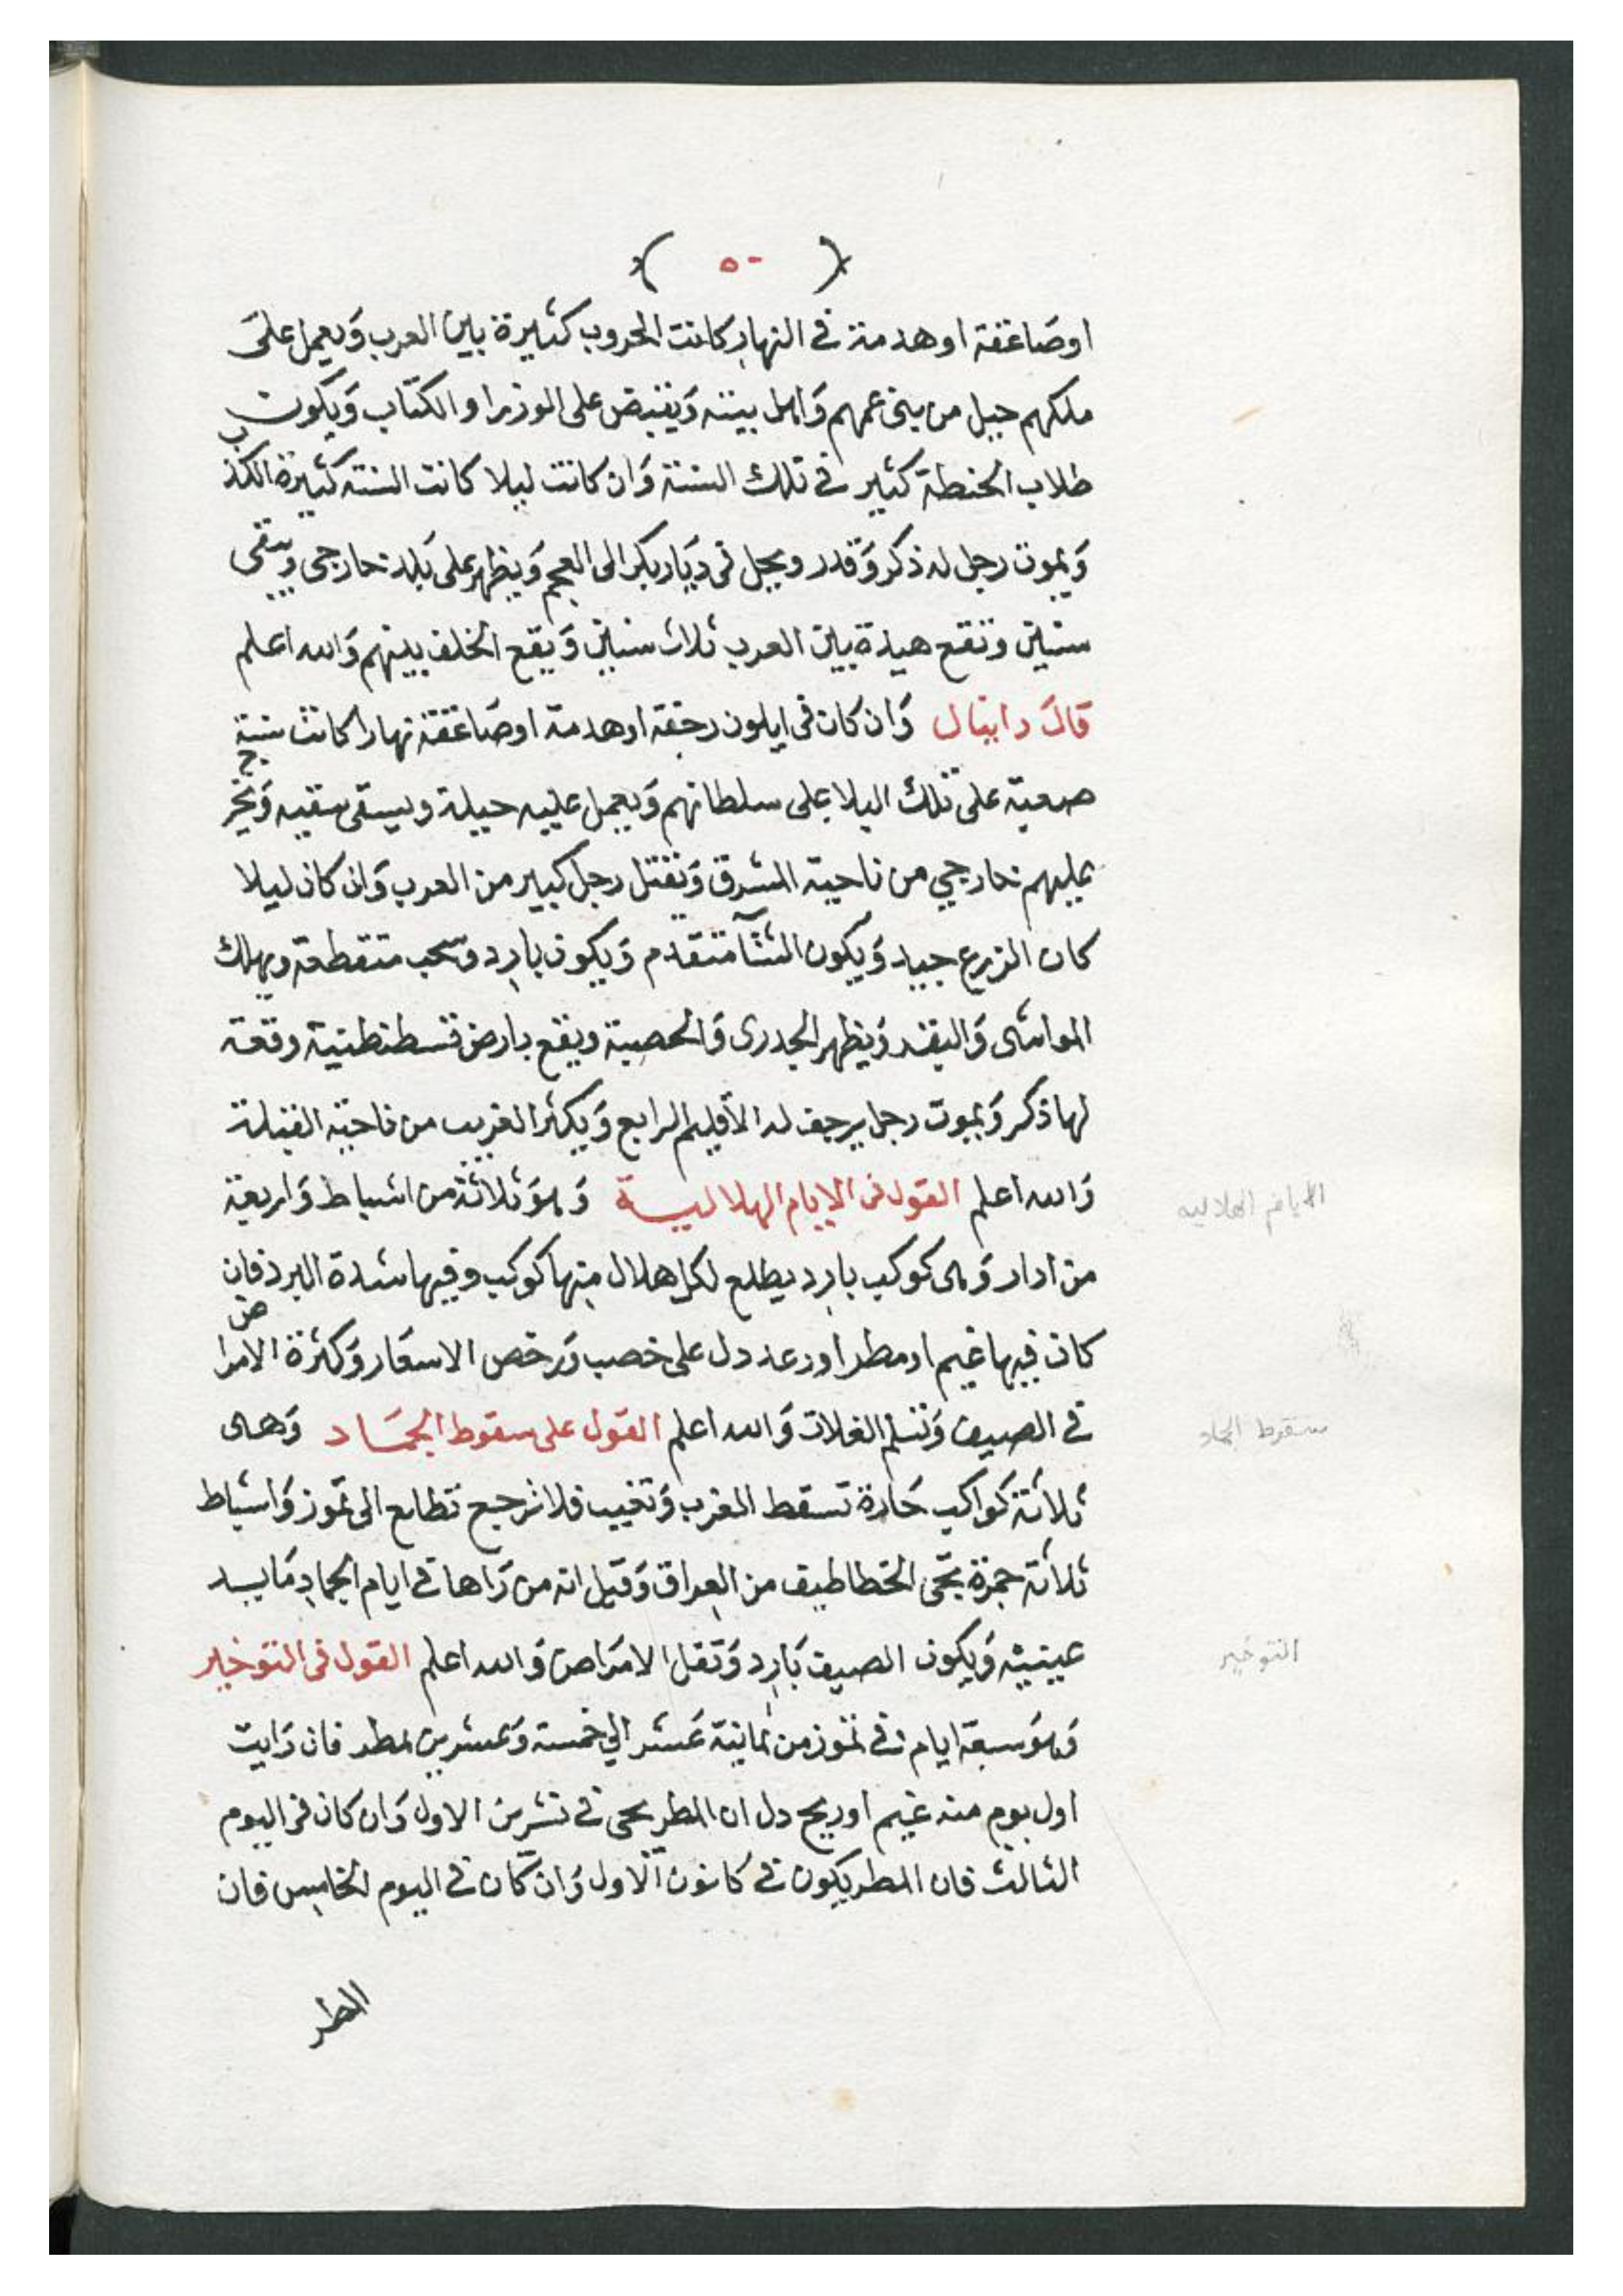 ( ٥٠ )
اوصاعقة اوهدمة في النهار كانت الحروب كثيرة بين العرب ويعمل على
ملكهم حيل من بنى عمهم واهل بيته ويقبض على الوزرا والكتاب ويكون
طلاب الحنطة كثير في تلك السنة وان كانت ليلا كانت السنة كثيرة الكذب
ويموت رجل له ذكر وقدر ويجل في ديار بكر الى العجم ويظهر على بلد خارجى ويبقى
سنين وتقع هيذة بين العرب ثلاث سنين ويقع الخلف بينهم والله اعلم
قال دانيال وان كان في ايلون رجفة اوهدمة اوصاعقة نهارا كانت سنة
صعبة على تلك البلا على سلطانهم ويعمل عليه حيلة ويسقى سقيه ويخرج
عليهم خارجي من ناحية المشرق وتقتل رجل كبير من العرب وان كان ليلا
كان الزرع جيد ويكون الشتآ متقدم ويكون بارد وسحب متقطعة ويهلك
المواشى والبقر ويظهر الجدرى والحصبة ويقع بارض قسطنطنية وقعة
لها ذكر ويموت رجل يرجف له الأقليم الرابع ويكثر الغريب من ناحية القبلة
والله اعلم القول في الايام الهلالية وهو ثلاثة من اشباط واربعة
من ادار وهى كوكب بارد يطلع لكل هلال منها كوكب وفيها شدة البرد فان
كان فيها غيم او مطر اورعد دل على خصب ورخص الاسعار وكثرة الامراض
في الصيف وتسلم الغلات والله اعلم القول على سقوط الجماد وهى
ثلاثة كواكب حارة تسقط المغرب وتغيب فلا ترجع تطلع الى تموز واشباط
ثلاثة جمرة تجى الخطاطيف من العراق وقيل انه من راها في ايام الجماد مايسد
عينيه ويكون الصيف بارد وتقل الامراض والله اعلم القول في التوخير
وهو سبعة ايام في تموز من ثمانية عشر الي خمسة وعشرين مطر فان رايت
اول يوم منه غيم اوريح دل ان المطر يجى في تشرين الاول وان كان في اليوم
الثالث فان المطر يكون في كانون الاول وان كان في اليوم الخامس فان
المطر
الايام الهلاليه
سقوط الجماد
التوخير